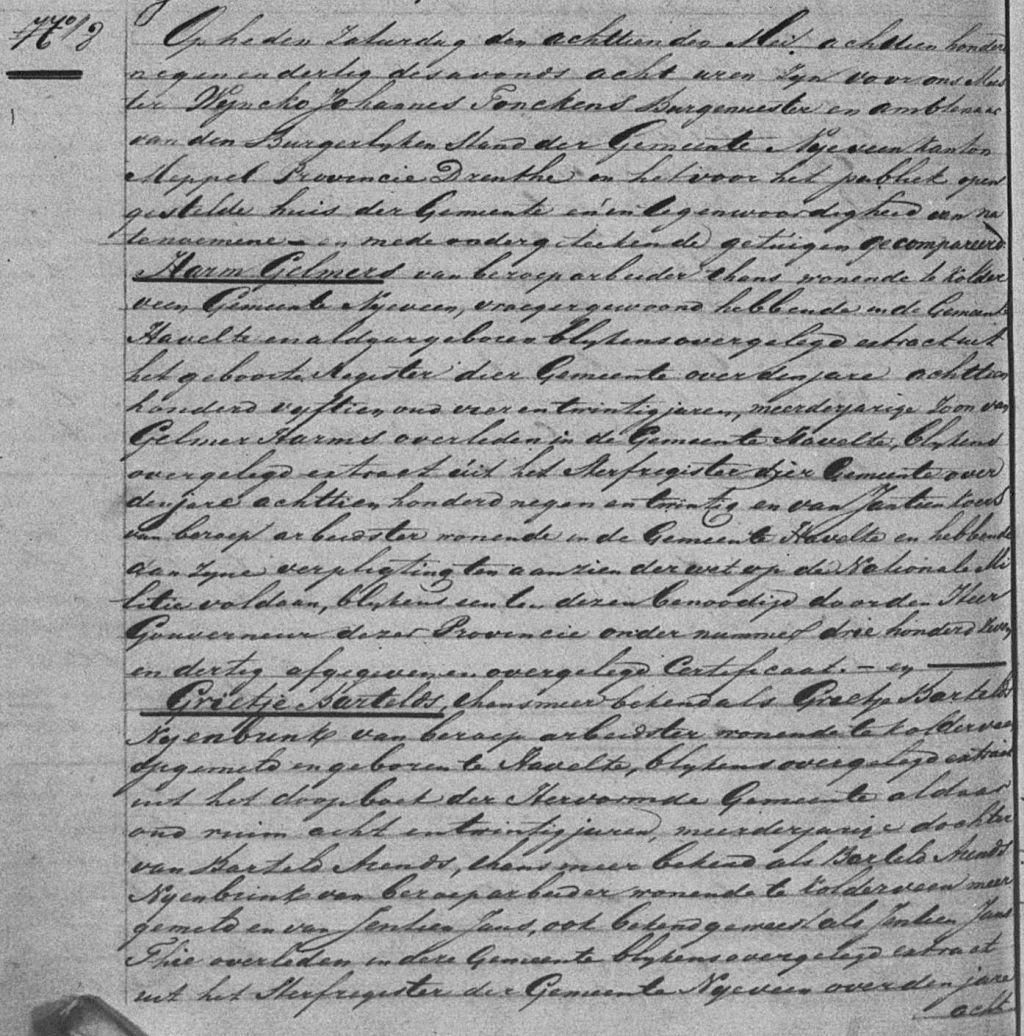 N.º 8
Op heden Zaturdag den achttienden Mei achttien honderd
negen en dertig des avonds acht uren zyn voor ons Mees
ter Wyncko Johannes Tonckens Burgemeester en ambtenaar
van den Burgerlyken Stand der Gemeente Nyeveen kanton
Meppel Provincie Drenthe in het voor het publiek open
gestelde huis der Gemeente en in tegenwoordigheid van na
tenoemene – en mede ondergeteekende getuigen gecompareerd
Harm Gelmers van beroep arbeider thans wonende te Kolder
veen Gemeente Nyeveen, vroeger gewoond hebbende in de Gemeente
Havelte en aldaar geboren blykens overgelegd extract uit
het geboorte Register dier Gemeente over den jare achttien
honderd vyftien oud vier en twintig jaren, meerderjarige zoon van
Gelmer Harms overleden in de Gemeente Havelte, blykens
overgelegd extract uit het Sterfregister dier Gemeente over
den jare achttien honderd negen en twintig en van Jantien
van beroep arbeidster wonende in de Gemeente Havelte en hebbende
aan zyne verpligting ten aanzien der wet op de Nationale Mi
litie voldaan, blykens een ten dezen benoodigd door den Heer
Gouverneur dezer Provincie onder nummer drie honderd zeven
en dertig afgegeven en overgelegd Certificaat. – en
Grietje Bartelds, thans meer bekend als Grietje Bartelds
Nyenbrink van beroep arbeidster wonende te Kolderveen
opgemeld en geboren te Havelte, blykens overgelegd extract
uit het doopboek der Hervormde Gemeente aldaar
oud ruim acht en twintig jaren, meerderjarige dochter
van Barteld Arends, thans meer bekend als Barteld Arends
Nyenbrink van beroep arbeider wonende te Kolderveen meer
gemeld en van Jentien Jans, ook bekend geweest als Jentien Jans
Thie overleden in deze Gemeente blykens overgelegd extract
uit het Sterfregister der Gemeente Nyeveen over den jare
acht